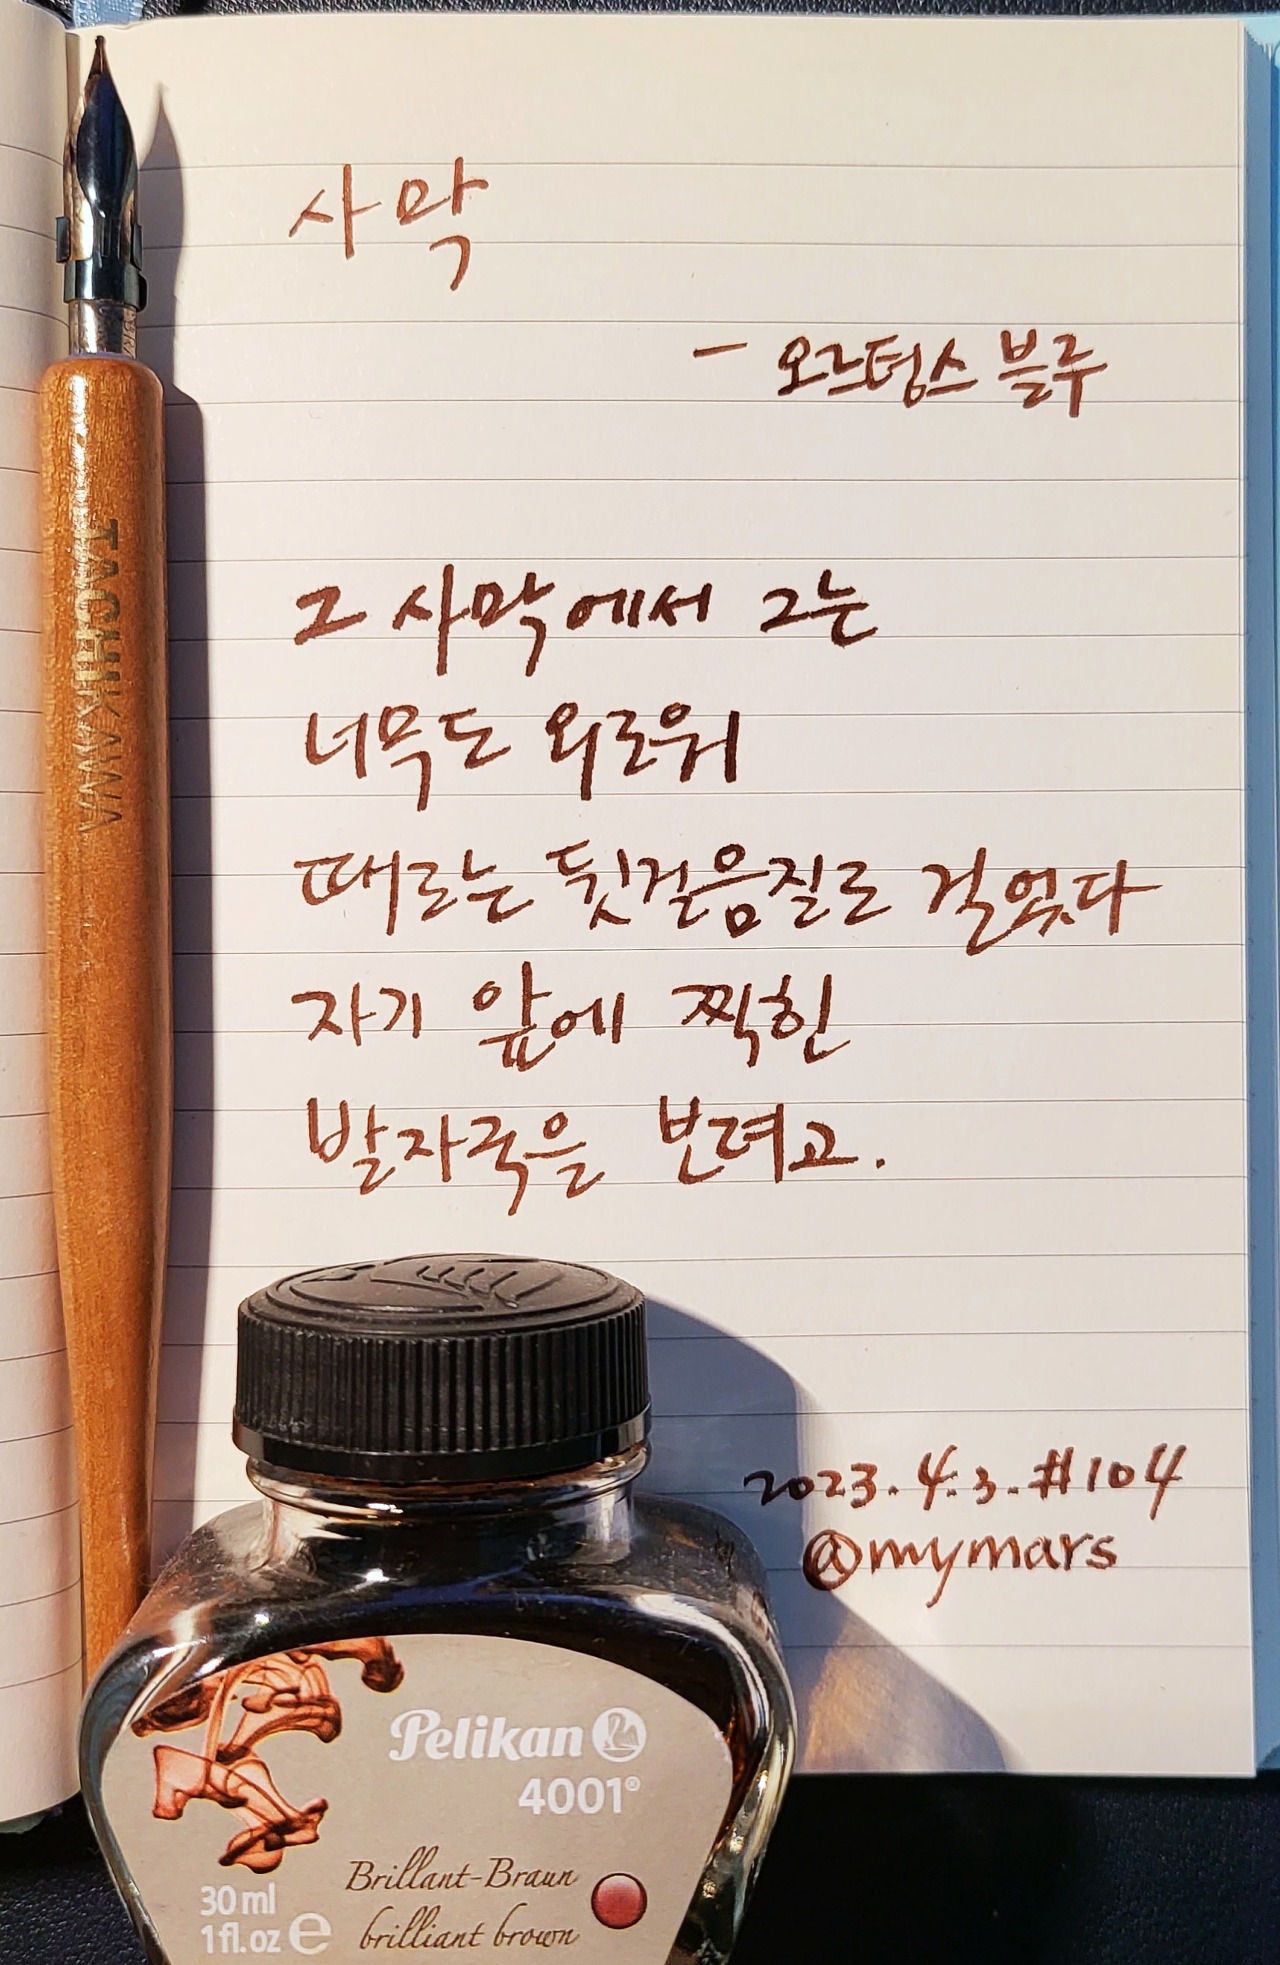 사막
- 오르텅스 블루
그 사막에서 그는
너무도 외로워
때로는 뒷걸음질로 걸었다
자기 앞에 찍힌
발자국을 보려고.
2023.4.3.#104
@mymars
TACHIKAWA
Pelikan
4001®
Brillant-Braun
brilliant brown
30 ml
1 fl.oz e